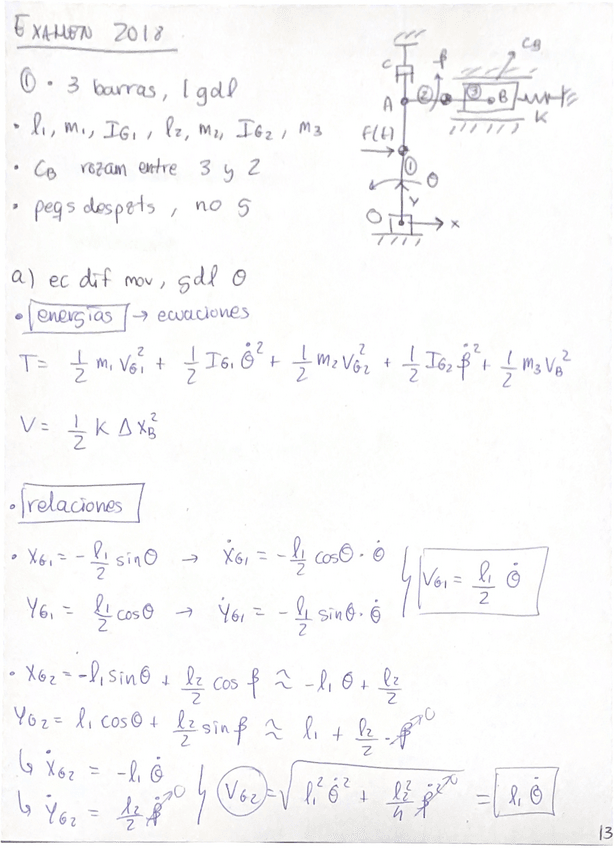 EXAMEN 2018
① · 3 barras, 1 gdl
· l₁, m₁, I_G₁, l₂, m₂, I_G₂, m₃
· C_B rozam entre 3 y 2
· peqs despzts, no g
C
C_B
β
A
②
③
B
K
F(t)
①
θ
Y
O
X
a) ec dif mov, gdl θ
· energías → ecuaciones
T = 1/2 m₁ V_G₁² + 1/2 I_G₁ θ̇² + 1/2 m₂ V_G₂² + 1/2 I_G₂ β̇² + 1/2 m₃ V_B²
V = 1/2 K Δx_B²
· relaciones
· X_G₁ = - l₁/2 sinθ → Ẋ_G₁ = - l₁/2 cosθ · θ̇
Y_G₁ = l₁/2 cosθ → Ẏ_G₁ = - l₁/2 sinθ · θ̇
V_G₁ = l₁/2 θ̇
· X_G₂ = -l₁ sinθ + l₂/2 cos β ≈ -l₁ θ + l₂/2
Y_G₂ = l₁ cosθ + l₂/2 sin β ≈ l₁ + l₂/2 · β → 0
↳ Ẋ_G₂ = -l₁ θ̇
↳ Ẏ_G₂ = l₂/2 β̇ → 0
V_G₂ = √(l₁² θ̇² + l₂²/4 β̇² → 0) = l₁ θ̇
13